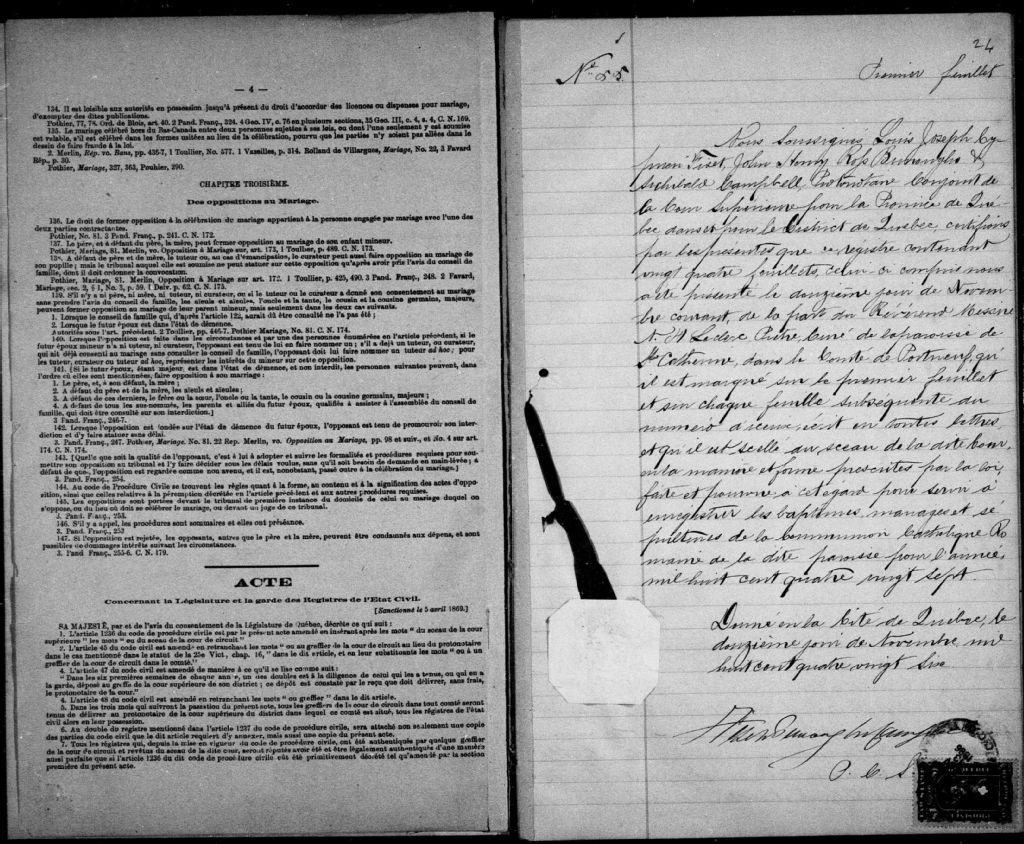 — 4 —
134. Il est loisible aux autorités en possession jusqu'à présent du droit d'accorder des licences ou dispenses pour mariage,
d'exempter des dites publications.
Pothier, 77, 78. Ord. de Blois, art. 40. 2 Pand. Franç., 324. 4 Geo. IV, c. 76 en plusieurs sections, 35 Geo. III, c. 4, s. 4, C. N. 169.
135. Le mariage célébré hors du Bas-Canada entre deux personnes sujettes à ses lois, ou dont l'une seulement y est soumise
est valable, s'il est célébré dans les formes usitées au lieu de la célébration, pourvu que les parties n'y soient pas allées dans le
dessein de faire fraude à la loi.
2. Merlin, Rép. vo. Bans, pp. 436-7, 1 Toullier, No. 577. 1 Vazeilles, p. 314. Rolland de Villargues, Mariage, No. 22, 3 Favard
Rép., p. 30.
Pothier, Mariage, 327, 363, Pouhier, 290.
CHAPITRE TROISIÈME.
Des oppositions au Mariage.
136. Le droit de former opposition à la célébration du mariage appartient à la personne engagée par mariage avec l'une des
deux parties contractantes.
Pothier, No. 81. 3 Pand. Franç., p. 241. C. N. 172.
137. Le père, et à défaut du père, la mère, peut former opposition au mariage de son enfant mineur.
Pothier, Mariage, 81. Merlin, vo. Opposition à Mariage sur, art. 173, 1 Toullier, p. 489. C. N. 173.
138. A défaut de père et de mère, le tuteur ou, au cas d'émancipation, le curateur peut aussi faire opposition au mariage de
son pupille; mais le tribunal auquel elle est soumise ne peut statuer sur cette opposition qu'après avoir pris l'avis du conseil de
famille, dont il doit ordonner la convocation.
Pothier, Mariage, 81. Merlin, Opposition à Mariage sur art. 172. 1 Toullier, p. 425, 490. 3 Pand. Franç., 248. 2 Favard,
Mariage, sec. 2, § 1, No. 3, p. 59. 1 Delv. p. 62. C. N. 175.
139. S'il n'y a ni père, ni mère, ni tuteur, ni curateur, ou si le tuteur ou le curateur a donné son consentement au mariage
sans prendre l'avis du conseil de famille, les aïeuls et aïeules, l'oncle et la tante, le cousin et la cousine germains, majeurs,
peuvent former opposition au mariage de leur parent mineur, mais seulement dans les deux cas suivants:
1. Lorsque le conseil de famille qui, d'après l'article 122, aurait dû être consulté ne l'a pas été;
2. Lorsque le futur époux est dans l'état de démence.
Autorités sous l'art. précédent. 2 Toullier, pp. 446-7. Pothier Mariage, No. 81. C. N. 174.
140. Lorsque l'opposition est faite dans les circonstances et par une des personnes énumérées en l'article précédent, si le
futur époux mineur n'a ni tuteur, ni curateur, l'opposant est tenu de lui en faire nommer un; s'il a déjà un tuteur, ou curateur,
qui ait déjà consenti au mariage sans consulter le conseil de famille, l'opposant doit lui faire nommer un tuteur ad hoc; pour
les tuteur, curateur ou tuteur ad hoc, représenter les intérêts du mineur sur cette opposition.
141. [Si le futur époux, étant majeur, est dans l'état de démence, et non interdit, les personnes suivantes peuvent, dans
l'ordre où elles sont mentionnées, faire opposition à son mariage:
1. Le père, et, à son défaut, la mère;
2. A défaut du père et de la mère, les aïeuls et aïeules;
3. A défaut de ces derniers, le frère ou la sœur, l'oncle ou la tante, le cousin ou la cousine germains, majeurs;
4. A défaut de tous les sus-nommés, les parents et alliés du futur époux, qualifiés à assister à l'assemblée du conseil de
famille, qui doit être consulté sur son interdiction.]
3 Pand. Franç. 246-7.
142. Lorsque l'opposition est fondée sur l'état de démence du futur époux, l'opposant est tenu de promouvoir son inter-
diction et d'y faire statuer sans délai.
3. Pand. Franç., 247. Pothier, Mariage, No. 81. 22 Rep. Merlin, vo. Opposition au Mariage, pp. 98 et suiv., et No. 4 sur art.
174. C. N. 174.
143. [Quelle que soit la qualité de l'opposant, c'est à lui à adopter et suivre les formalités et procédures requises pour sou-
mettre son opposition au tribunal et l'y faire décider sous les délais voulus, sans qu'il soit besoin de demande en main-levée; à
défaut de quoi, l'opposition est regardée comme non avenue, et il est, nonobstant, passé outre à la célébration du mariage.]
3. Pand. Franç., 254.
144. Au code de Procédure Civile se trouvent les règles quant à la forme, au contenu et à la signification des actes d'oppo-
sition, ainsi que celles relatives à la péremption décrétée en l'article précédent et aux autres procédures requises.
145. Les oppositions sont portées devant le tribunal de première instance du domicile de celui au mariage duquel on
s'oppose, ou du lieu où doit se célébrer le mariage, ou devant un juge de ce tribunal.
3. Pand. Franç., 253.
146. S'il y a appel, les procédures sont sommaires et elles ont préséance.
3. Pand. Franç., 253
147. Si l'opposition est rejetée, les opposants, autres que le père et la mère, peuvent être condamnés aux dépens, et sont
passibles de dommages intérêts suivant les circonstances.
3. Pand. Franç., 255-6. C. N. 179.
ACTE
Concernant la Législature et la garde des Registres de l'Etat Civil.
[Sanctionné le 5 avril 1869.]
SA MAJESTÉ, par et de l'avis du consentement de la Législature de Québec, décrète ce qui suit:
1. L'article 1236 du code de procédure civile est par le présent acte amendé en insérant après les mots "du sceau de la cour
supérieure" les mots "ou du sceau de la cour de circuit."
2. L'article 45 du code civil est amendé en retranchant les mots "ou au greffier de la cour de circuit au lieu du protonotaire
dans le cas mentionné dans le statut de la 25e Vict, chap. 16," dans le dit article, et en leur substituant les mots "ou à un
greffier de la cour de circuit dans le comté."
4. L'article 47 du code civil est amendé de manière à ce qu'il se lise comme suit:
"Dans les six premières semaines de chaque année, un des doubles est à la diligence de celui qui les a tenus, ou qui en a
la garde, déposé au greffe de la cour supérieure de son district; ce dépôt est constaté par le reçu que doit délivrer, sans frais,
le protonotaire de la cour."
4. L'article 48 du code civil est amendé en retranchant les mots "ou greffier" dans le dit article.
5. Dans les trois mois qui suivront la passation du présent acte, tous les greffiers de la cour de circuit dans tout comté seront
tenus de délivrer au protonotaire de la cour supérieure du district dans lequel ce comté est situé, tous les registres de l'état
civil alors en leur possession.
6. Au double du registre mentionné dans l'article 1237 du code de procédure civile, sera attaché non seulement une copie
des parties du code civile que le dit article requiert d'y annexer, mais aussi une copie du présent acte.
7. Tous les registres qui, depuis la mise en vigueur du code de procédure civile, ont été authentiqués par quelque greffier
de la cour de circuit et revêtus du sceau de la dite cour, seront réputés avoir été et être légalement authentiqués d'une manière
aussi parfaite que si l'article 1236 du dit code de procédure civile eût été primitivement décrété tel qu'amendé par la section
première du présent acte.
24
No. 55
Premier feuillet
Nous Soussignés, Louis Joseph Cy-
prien Fiset, John Henry Ross Burroughs &
Archibald Campbell, Protonotaire Conjoint de
la Cour Supérieure pour la Province de Qué-
bec dans et pour le District de Québec, certifions
par les présentes que ce registre contenant
vingt quatre feuillets, celui-ci compris nous
a été présenté le douzième jour de Novem-
bre courant, de la part du Révérend Messire
F. H. Leclerc Prêtre Curé de la paroisse de
Ste Catherine, dans le Comté de Portneuf, qu'
il est marqué sur le premier feuillet
et sur chaque feuille subséquente du
numéro d'iceux écrit en toutes lettres,
et qu'il est scellé du sceau de la dite Cour
en la manière et forme prescrites par la loi,
faite et pourvue à cet égard pour servir à
enregistrer les baptêmes, mariages et sé-
pultures de la Communion Catholique Ro-
maine de la dite paroisse pour l'année
mil huit cent quatre vingt sept.
Donné en la Cité de Québec, le
douzième jour de Novembre mil
huit cent quatre vingt six
P. C. S.